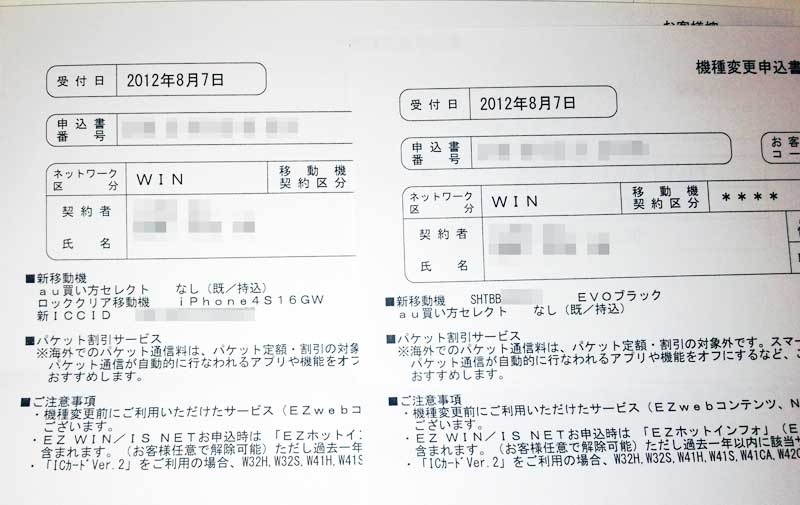 お客様控
受付日 2012年8月7日
申込書
番号
ネットワーク
区分 WIN 移動機
契約区分
契約者
氏名
■新移動機
au買い方セレクト なし(既/持込)
ロッククリア移動機 iPhone4S16GW
新ICCID
■パケット割引サービス
※海外でのパケット通信料は、パケット定額・割引の対象
パケット通信が自動的に行なわれるアプリや機能をオフ
おすすめします。
■ご注意事項
・機種変更前にご利用いただけたサービス(EZwebコ
ございます。
・EZ WIN/IS NETお申込時は 「EZホットイン
含まれます。(お客様任意で解除可能)ただし過去一年
・「ICカードVer.2」をご利用の場合、W32H,W32S,W41H,W41S
機種変更申込書
受付日 2012年8月7日
申込書
番号
お客
コー
ネットワーク
区分 WIN 移動機
契約区分 ****
契約者
氏名
■新移動機 SHTBB EVOブラック
au買い方セレクト なし(既/持込)
■パケット割引サービス
※海外でのパケット通信料は、パケット定額・割引の対象外です。スマー
パケット通信が自動的に行なわれるアプリや機能をオフにするなど、こ
おすすめします。
■ご注意事項
・機種変更前にご利用いただけたサービス(EZwebコンテンツ、N
ございます。
・EZ WIN/IS NETお申込時は 「EZホットインフォ」(E
含まれます。(お客様任意で解除可能)ただし過去一年以内に該当サ
・「ICカードVer.2」をご利用の場合、W32H,W32S,W41H,W41S,W41CA,W42C